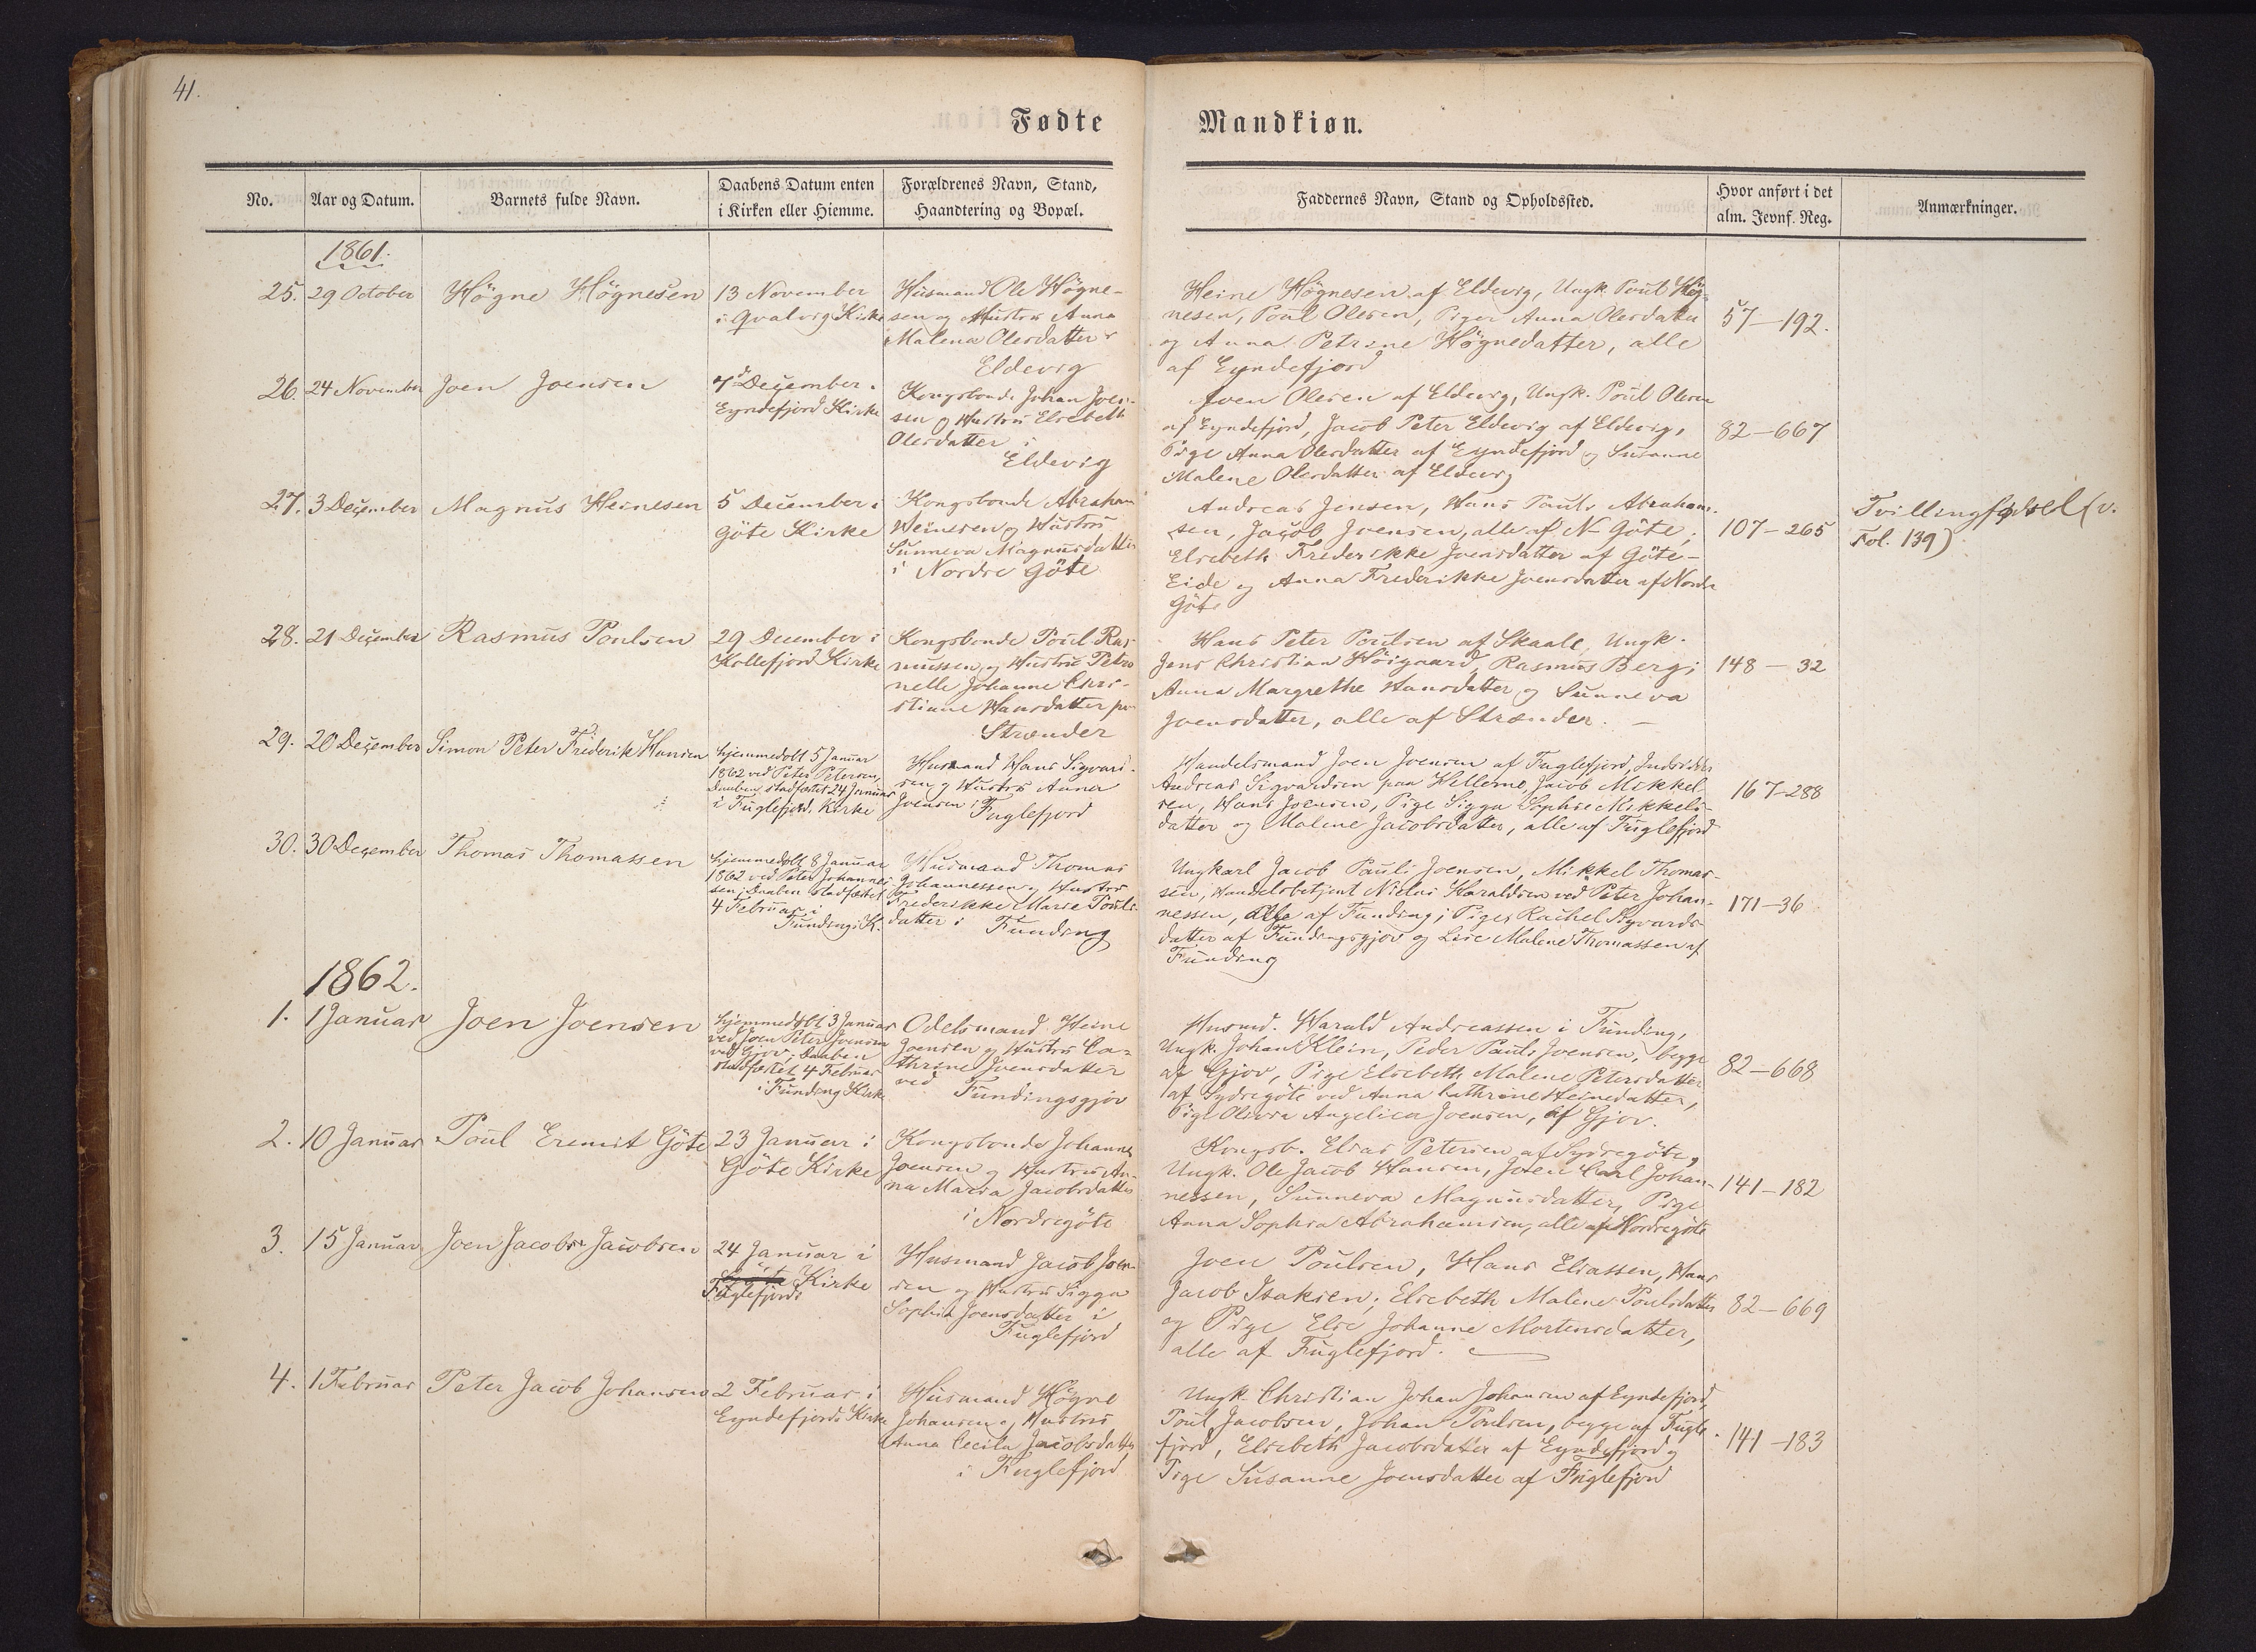 41.
Fødte
Mandkiøn.
No.
Aar og Datum.
Barnets fulde Navn.
Daabens Datum enten
i Kirken eller Hiemme.
Forældrenes Navn, Stand,
Haandtering og Bopæl.
Faddernes Navn, Stand og Opholdssted.
Hvor anført i det
alm. Jevnf. Reg.
Anmærkninger.
1861.
25.
29 October
Högne Högnesen
13 November
i Qvalvig Kirke
Husmand Ole Högne-
sen og Hustru Anna
Malena Olesdatter i
Eldevig
Heine Högnesen af Eldevig, Ungk. Poul Hög-
nesen, Poul Olesen, Piger Anna Olesdatter
og Anna Petrine Högnedatter, alle
af Eyndefjord
57-192.
26.
24 November
Joen Joensen
7d December i
Eyndefjord Kirke
Kongsbonde Johan Joen-
sen og Hustru Elsebeth
Olesdatter i
Eldevig
Joen Olesen af Eldevig, Ungk. Poul Olesen
af Eyndefjord, Jacob Peter Eldevig af Eldevig,
Pige Anna Olesdatter af Eyndefjord og Susanne
Malene Olesdatter af Eldevig
82-667
27.
3 December
Magnus Heinesen
5 December i
Göte Kirke
Kongsbonde Abraham
Heinesen og Hustru
Sunneva Magnusdatter
i Nordre Göte
Andreas Jensen, Hans Pauli Abraham-
sen, Jacob Joensen, alle af N-Göte;
Elsebeth Frederikke Joensdatter af Göte-
Eide og Anna Frederikke Joensdatter af Nordr
Göte
107-265
Tvillingfødsel (v.
Fol. 139)
28.
21 December
Rasmus Poulsen
29 December i
Kollefjord Kirke
Kongsbonde Poul Ras-
mussen og Hustru Petro
nelle Johanne Chri-
stiane Hansdatter paa
Strænder
Hans Peter Poulsen af Skaale, Ungk.
Jens Christian Höigaard, Rasmus Berg;
Anna Margrethe Hansdatter og Sunneva
Joensdatter, alle af Strænder.
148-32
29.
20 December
Simon Peter Frederik Hansen
hjemmedøbt 5 Januar
1862 ved Peter Petersen,
Daaben stadfæstet 24 Januar
i Fuglefjord. Kirke
Husmand Hans Sigvard-
sen og Hustru Anna
Joensen i Fuglefjord
Handelsmand Joen Joensen af Fuglefjord,
Andreas Sigvardsen paa Hellerne, Jacob Mikkel
sen, Hans Joensen, Pige Sigga Sophie Mikkels-
datter og Malene Jacobsdatter, alle af Fuglefjord
167-288
30.
30 December
Thomas Thomassen
hjemmedøbt 8 Januar
1862 ved Peter Johannes-
sen; Daaben stadfæstet
4 Februar i
Funding K.
Husmand Thomas
Johannessen og Hustru
Frederikke Marie Pouls-
datter i Funding
Ungkarl Jacob Pauli Joensen, Mikkel Thomas-
sen, Handelsbetjent Niclas Haraldsen ved Peter Johan-
nessen, Alle af Funding; Piger Rachel Sigvards-
datter af Fundingsgjov og Lise Malene Thomassen af
Funding
171-36
1862.
1.
1 Januar
Joen Joensen
hjemmedøbt 3 Januar
ved Joen Peter Joensen
ved Gjov; Daaben
stadfæstet 4 Februar
i Funding Kirke
Odelsmand Heine
Joensen og Hustru Ca-
thrine Joensdatter
ved Fundingsgjov
Husmd. Harald Andreassen i Funding,
Ungk. Johan Klein, Peder Pauli Joensen, begge
af Gjov, Pige Elsebeth Malene Petersdatter
af Sydregöte ved Anna Cathrine Heinedatter,
Pige Olivia Angelica Joensen, af Gjov.
82-668
2.
10 Januar
Poul Eremit Göte
23 Januar i
Göte Kirke
Kongsbonde Johannes
Joensen og Hustru An-
na Maria Jacobsdatter
i Nordregöte
Kongsb. Elias Petersen af Sydregöte,
Ungk. Ole Jacob Hansen, Joen Carl Johan-
nessen, Sunneva Magnusdatter, Pige
Anna Sophia Abrahamsen, alle af Nordregöte
141-182
3.
15 Januar
Joen Jacob Jacobsen
24 Januar i
Göte Kirke
Fuglefjords
Husmand Jacob Joen-
sen og Hustru Sigga
Sophia Joensdatter i
Fuglefjord
Joen Poulsen, Hans Eliassen, Hans
Jacob Isaksen; Elsebeth Malene Poulsdatter
og Pige Else Johanne Mortensdatter,
alle af Fuglefjord.
82-669
4.
1 Februar
Peter Jacob Johansen
2 Februar i
Eyndefjords Kirke
Husmand Högne
Johansen og Hustru
Anna Cecilia Jacobsdatter
i Fuglefjord
Ungk. Christian Johan Johansen af Eyndefjord,
Poul Jacobsen, Johan Poulsen, begge af Fugle-
fjord, Elsebeth Jacobsdatter af Eyndefjord og
Pige Susanne Joensdatter af Fuglefjord
141-183